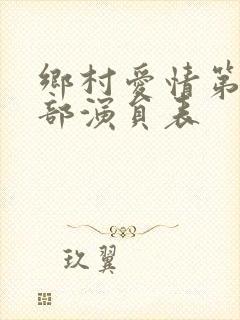 鄉村愛情第
部演員表
玖翼